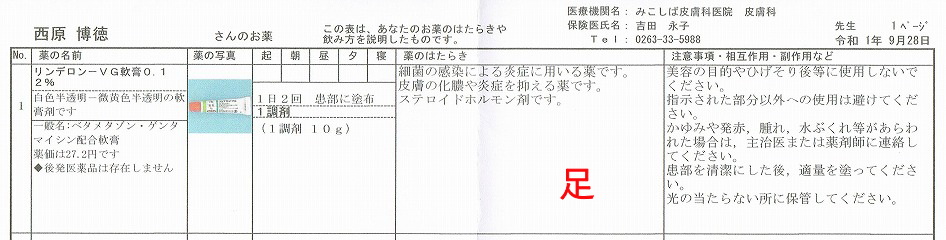 医療機関名： みこしば皮膚科医院 皮膚科
西原 博徳 さんのお薬
この表は、あなたのお薬のはたらきや
飲み方を説明したものです。
保険医氏名： 吉田 永子 先生 1ページ
Ｔｅｌ： 0263-33-5988 令和 1年 9月28日
No. 薬の名前 薬の写真 起 朝 昼 夕 寝 薬のはたらき 注意事項・相互作用・副作用など
1
リンデロン－ＶＧ軟膏０．１
２％
白色半透明－微黄色半透明の軟
膏剤です
一般名：ベタメタゾン・ゲンタ
マイシン配合軟膏
薬価は27.2円です
◆後発医薬品は存在しません
１日２回 患部に塗布
１調剤
（１調剤 １０ｇ）
細菌の感染による炎症に用いる薬です。
皮膚の化膿や炎症を抑える薬です。
ステロイドホルモン剤です。
足
美容の目的やひげそり後等に使用しないで
ください。
指示された部分以外への使用は避けてくだ
さい。
かゆみや発赤，腫れ，水ぶくれ等があらわ
れた場合は，主治医または薬剤師に連絡し
てください。
患部を清潔にした後，適量を塗ってくださ
い。
光の当たらない所に保管してください。